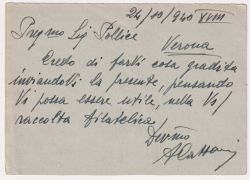 24/10/940 XVIII
Pregmo Sig Pollice
Verona
Credo di farVi cosa gradita
inviandoVi la presente, pensando
Vi possa essere utile, nella Vs/
raccolta filatelica
Devmo